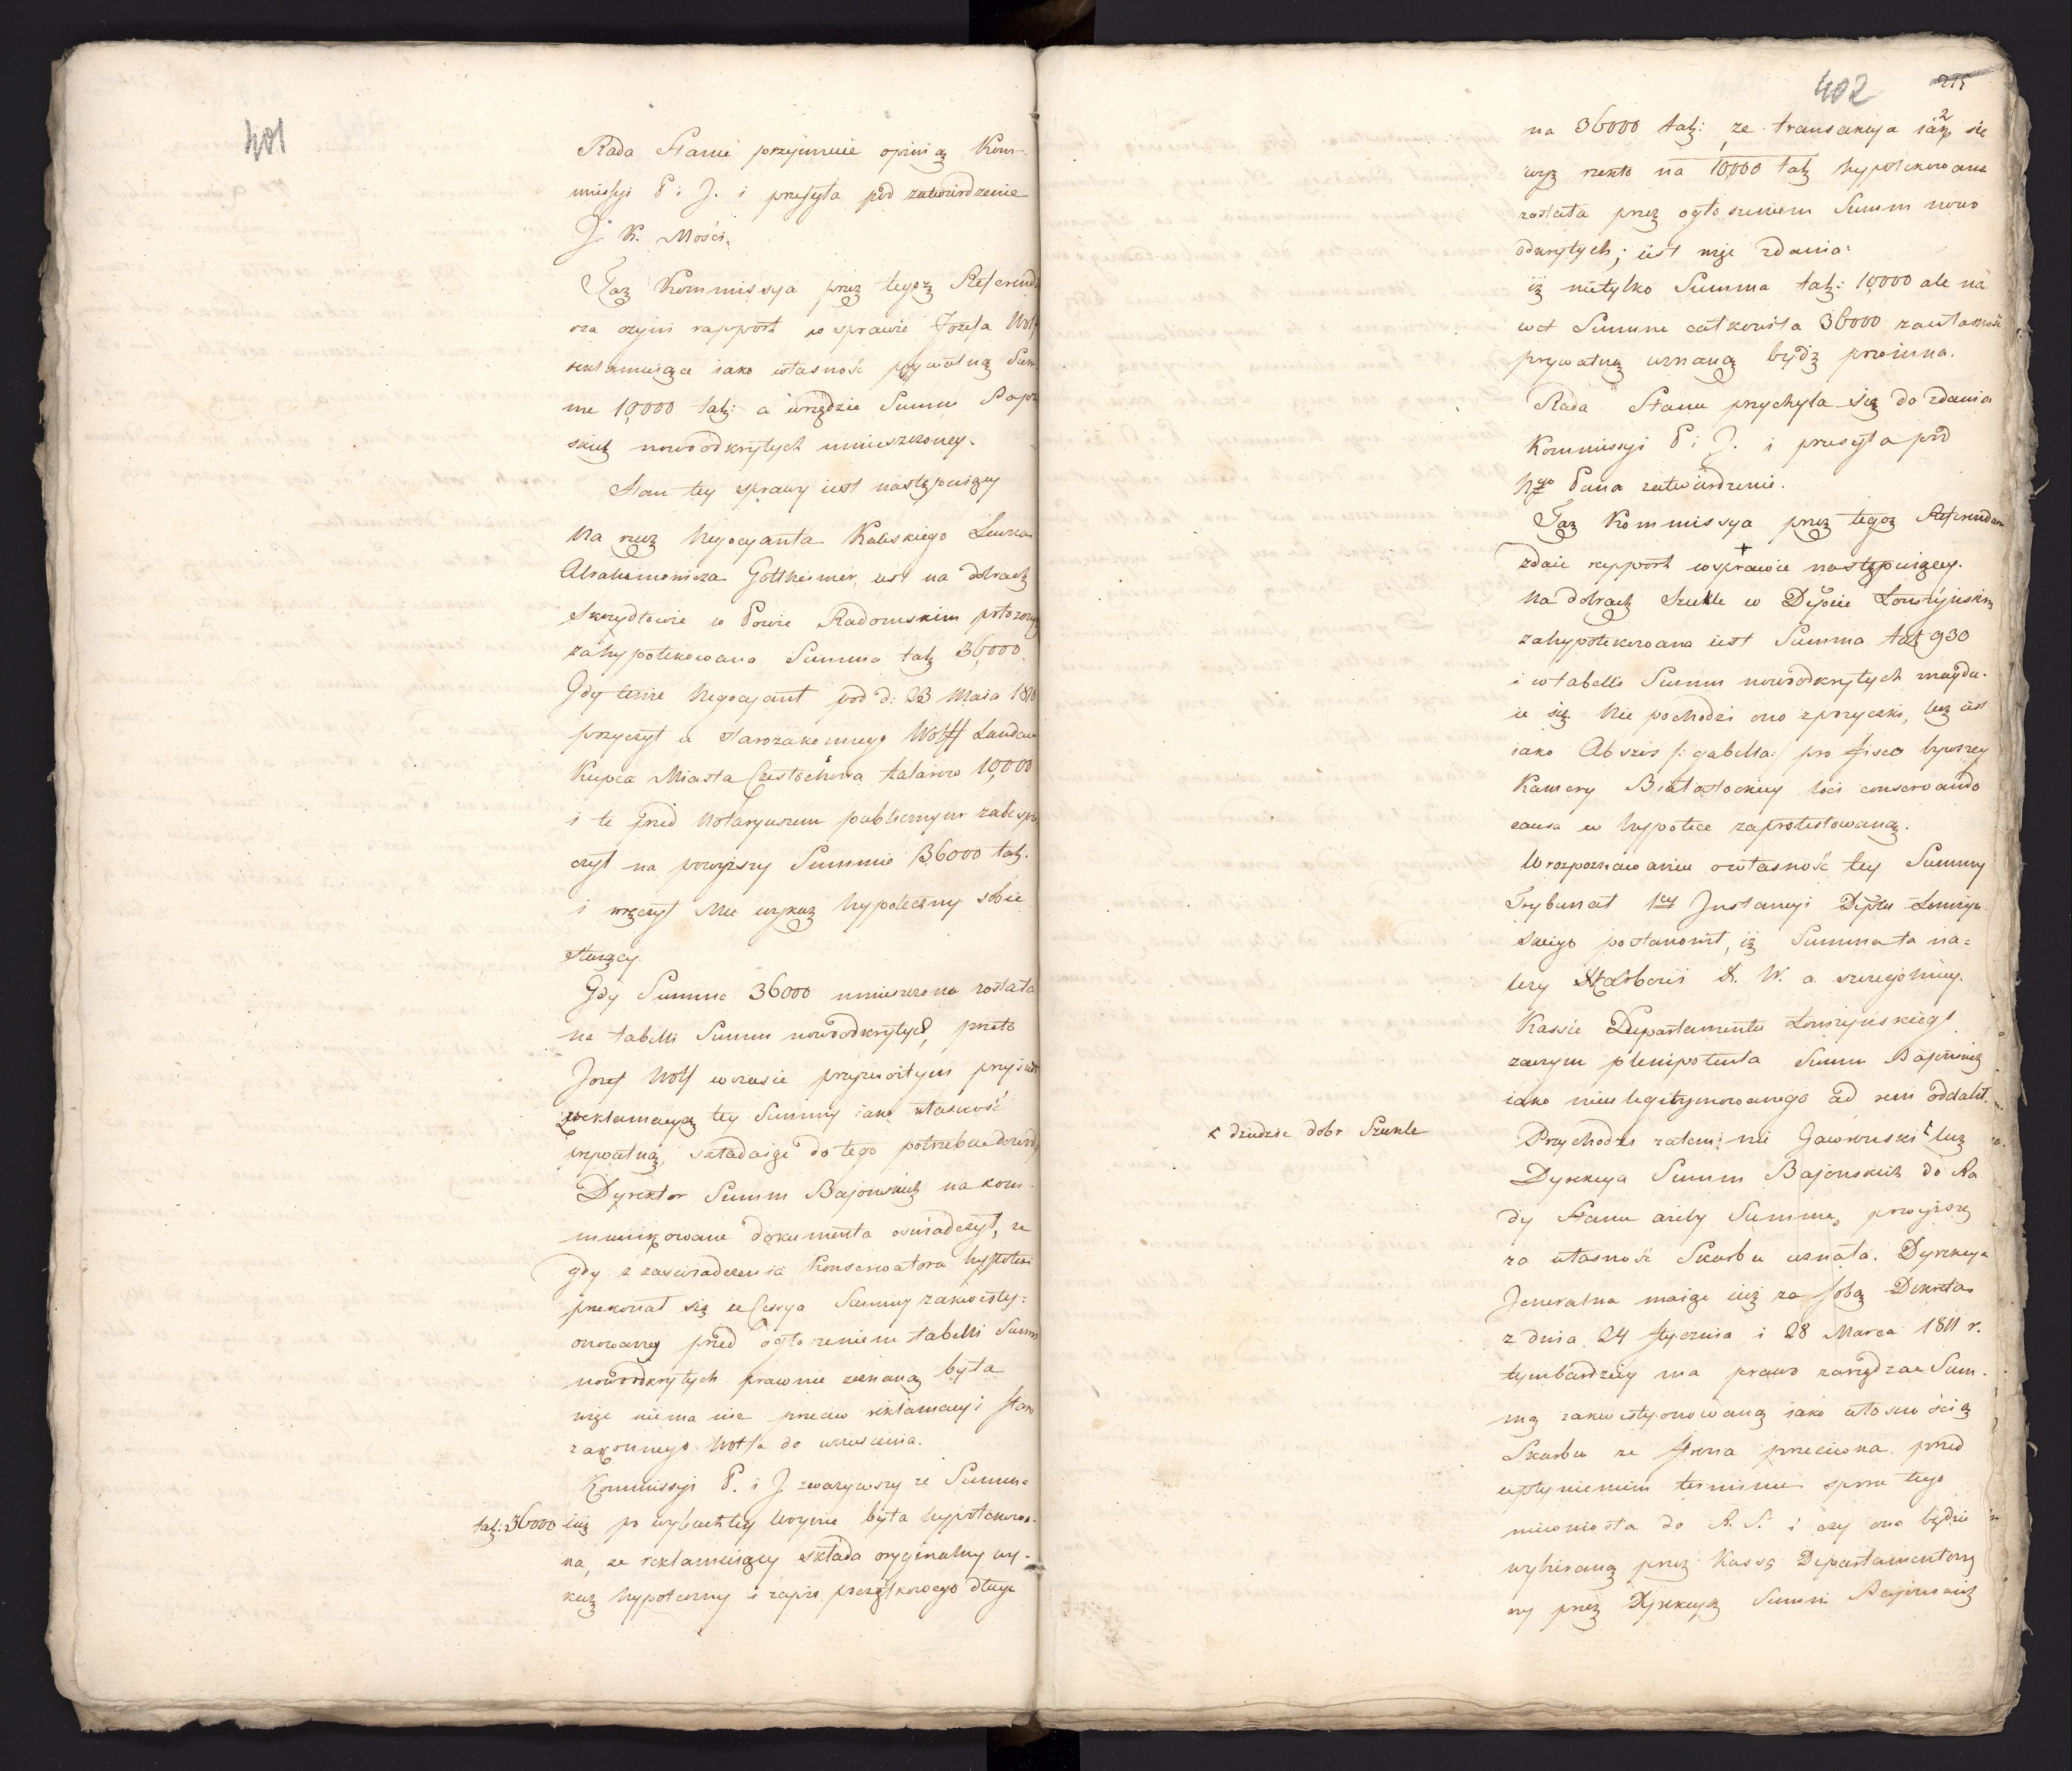 401
Rada Stanu przyimuie opinią Kom-
missyi P. i J. i przesyła pod zatwierdzenie
J. K. Mości.
Taż Kommissya przez tegoż Referenda
rza czyni rapport w sprawie Jozefa Wolf
reklamuiące iako własność prywatną Sum
me 10,000 tal: a w rzędzie Summ Bajon
skich nowoodkrytych umieszczoney.
Stan tey sprawy iest następuiący
Na rzecz Negocyanta Kaliskiego Lewka
Abrahamowicza Gottheimer, iest na dobrach
Skrzydłowie w Powie Radomskim położonych
zahypotekowana Summa tal 36,000.
Gdy tenże Negocyant pod d: 23 Maia 1810
pozyczył u starozakonnego Wolff Landau
Kupca Miasta Częstochowa talarow 10,000
i te przed Notaryuszem publicznym zabespie
czył na powyższy Summie 36000 tal.
i wręczył Mu wykaz hypoteczny sobie
służący.
Gdy Summa 36000 umieszczona została
na tabelli Summ nowoodkrytych, przeto
Jozef Wolf w czasie przyzwoitym przyszedł
z reklamacyą tey Summy iako własność
prywatną, składaiąc do tego potrzebne dowody
Dyrektor Summ Bajonskich na kom-
munikowane dokumenta oswiadczył, że
gdy z zaswiadczenia Konserwatora hypoteki
przekonał się że Cessya Summy zakwesty-
onowaney przed ogłoszeniem tabelli Summ
nowoodkrytych prawnie zeznaną była
więc niema nic przeciw reklamacyi staro
zakonnego Wolfa do wniesienia.
Kommissyi P. i J. zwazywszy że Summa
tal: 36000 iuż po wybuchłey woynie była hypotekowa-
na, że reklamuiący składa oryginalny wy-
kaz hypoteczny i zapis początkowego długu
402 215
na 36000 tal: że transakcya iak się
wyż rzekło na 10,000 tal hypotekowana
została przez ogłoszeniem Summ nowo
odkrytych; iest więc zdania:
iż nietylko Summa tal: 10,000 ale na
wet Summa całkowita 36000 za własność
prywatną uznaną bydź powinna.
Rada Stanu przychyla się do zdania
Kommissyi P. i J. i przesyła pod
Ngo Pana zatwierdzenie.
Taż Kommissya przez tegoż Referendarza
zdaie rapport w sprawie następuiącey.
Na dobrach Szukle w Depcie Łomżyńskim
zahypotekowana iest Summa tal 930
i w tabelli Summ nowoodkrytych znayду-
ie się. Nie pochodzi ono z pozyczki, lecz iest
iako Abszos /: gabella: pro fisco bywszey
Kamery Białostockiey loci conservando
causa w hypotece zaprotestowaną.
W rozpoznawaniu o własność tey Summy
Trybunał 1ey Instancyi Deptu Łomżyn
skiego postanowił, iż Summa ta na-
leży Skarbowi X. W. a szczegolniey
Kassie Departamentu Łomżyńskiego
zaczym plenipotenta Summ Bajonskich
iako nieulegitymowanego ad rem oddalił.
× dziedzic dobr Szukle
Przychodzi zatem nie Gaworuski × lecz
Dyrekcya Summ Bajonskich do Ra
dy Stanu ażeby Summę powyższą
za własność Skarbu uznała. Dyrekcya
Jeneralna maiąc iuż za sobą Dekreta
z dnia 24 Stycznia i 28 Marca 1811 r.
tymbardziey ma prawo zarządzać Sum-
mą zakwestyonowaną iako własnością
Skarbu że strona przeciwna przed
upłynieniem terminu sporu tego
niewniosła do R. S. i czy ona będzie
wybieraną przez Kassę Departamentową
czy przez Dyrekcyą Summ Bajonskich